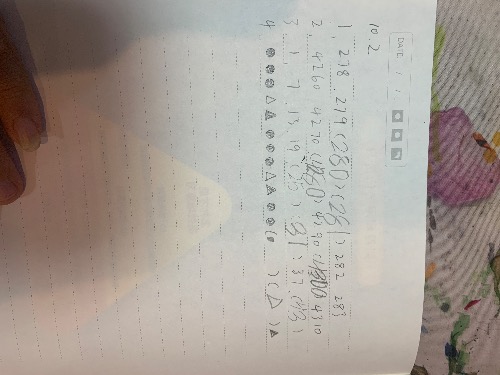 DATE / /
10.2
1. 278 279 (280) (281) 282 283
2. 4260 4270 (4280) 4290 (4300) 4310
3 1, 7, 13, 19 (25), (31), 37, (43)
4 ●●●△▲●●●△▲●●(● )(△)▲